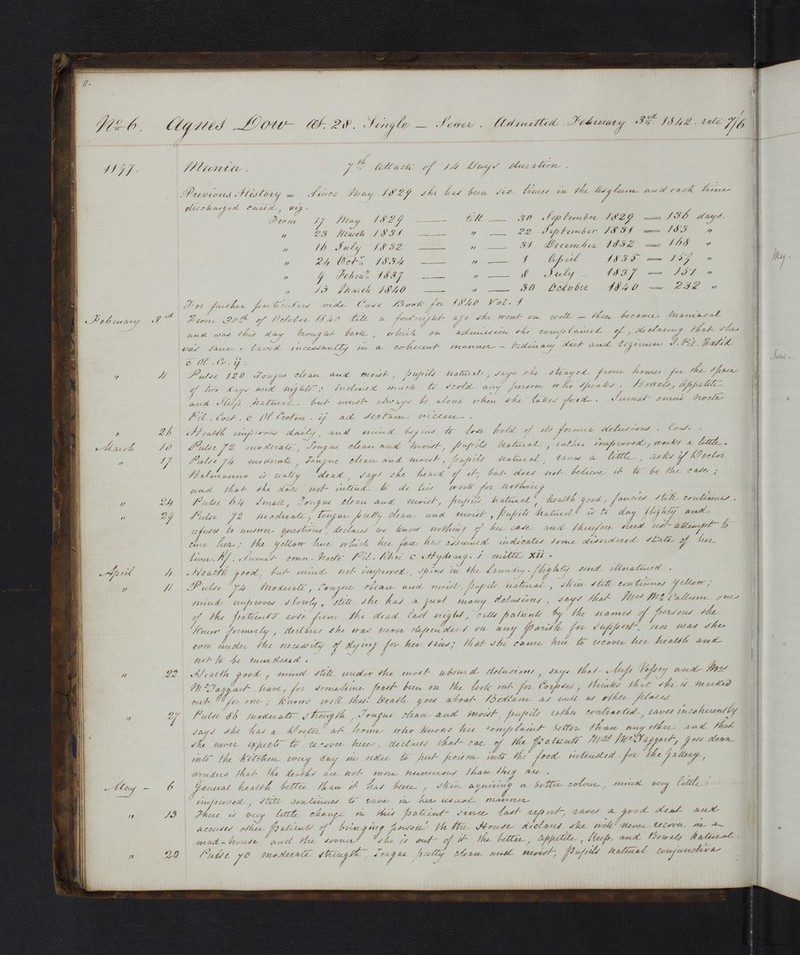 No 6. Agnes Dow Æt. 28. Single — Sewer. Admitted February 3rd 1842. rate 7/6
1197. Mania. 7th Attack of 14 Days duration.
Previous History — Since May 1829 she has been six times in the Asylum and each time
discharged cured, viz.
From 17 May 1829 — till — 30 September 1829 — 136 days.
" 23 March 1831 — " — 22 September 1831 — 183 "
" 16 July 1832 — " — 31 December 1832 — 168 "
" 24 Octr 1834 — " — 1 April 1835 — 159 "
" 9 Febru. 1837 — " — 8 July 1837 — 151 "
" 13 March 1840 — " — 30 October 1840 — 232 "
For further particulars vide Case Book for 1840 Vol. 1
February 3rd From 30th of October 1840 till a fortnight ago she went on well — then became Maniacal
and was this day brought back. which on admission she complained of, declaring that she
was sane. raved incessantly in a coherent manner — Ordinary diet and regimen
c Ol. Cr. ij.
" 4 Pulse 120 Tongue clean and moist, pupils natural, says she strayed from home for the space
of two days and nights; Inclined much to scold any person who speaks. Bowels, Appetite
and Sleep natural. but must always be alone when she takes food. Sumat omni nocte
Pil. c Ol Croton. ij ad
" 26 Health improves daily, and mind begins to lose hold of its former delusions. Con.
March 10 Pulse 72 moderate, Tongue clean and moist, pupils natural, rather improved, works a little.
" 17 Pulse 74 moderate, Tongue clean and moist, pupils natural, raves a little, asks if Doctor
Balmanno is really dead, says she heard of it, but does not believe it to be the case;
and that she does not intend to do his work for nothing
" 24 Pulse 64 Small, Tongue clean and moist, pupils natural, health good, fancies still continues.
" 29 Pulse 72 moderate, tongue pretty clean and moist, pupils natural is to day flighty and
refuses to answer questions, declares we know nothing of her case and therefore need not attempt to
cure her; the yellow hue which her face has assumed indicates some disordered state of her
liver. Rx. Sumat omn. Nocte Pil. Rhei c Hydrarg. i mitte xii.
April 4 Health good, but mind not improved, spins in the Laundry. flighty and
" 11 Pulse 74 Moderate, Tongue clean and moist, pupils natural, skin still continues yellow;
mind improves slowly, still she has a great many delusions. says that Mrs McCallum one
of the patients rose from the dead last night, calls patients by the names of persons she
knew formerly, declares she was never dependent on any Parish for support. nor was she
ever under the necessity of dying for her sins; that she came here to recover her health and
not to be murdered.
" 22 Health good, mind still under the most absurd delusions, says that Miss and Mrs
McTaggart have, for sometime past been on the look out for Corpses, thinks that she is marked
out for one; knows well that Death goes about Bedlams as well as other places.
" 27 Pulse 86 moderate strength, Tongue clean and moist, pupils rather contracted, raves incoherently
says she has a Doctor at home who knows her complaint better than any other and that
she never expects to recover here. declares that one of the patients Mrs McTaggart, goes down
into the Kitchen every day in order to put poison into the food intended for the Gallery,
wonders that the deaths are not more numerous than they are.
May — 6 General health better than it has been, skin acquiring a better colour, mind very little
improved, still continues to rave in her usual manner
" 13 There is very little change in this patient since last report, raves a good deal and
accuses other patients of bringing poison in the House declares she will never recover in a
mad-house and the sooner she is out of it the better, appetite, sleep, and Bowels Natural.
" 20 Pulse 70 moderate strength, Tongue pretty clean and moist, Pupils natural conjunctiva
May.
June.